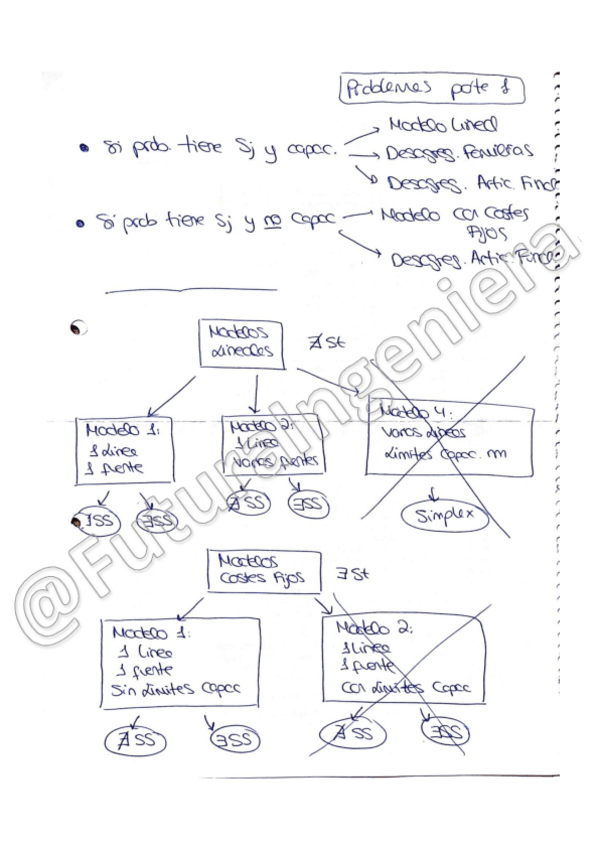 Problemas parte 1
• Si prob. tiene Sj y capac.
Modelo Lineal
Desagreg. Familias
Desagreg. Artic. Finale
• Si prob tiene Sj y no Capac
Modelo con Costes
Fijos
Desagreg. Artic. Finale
Modelos
Lineales
∄ St
Modelo 1:
1 Linea
1 fuente
∄ SS
∃ SS
Modelo 2:
1 Linea
Varias fuentes
∄ SS
∃ SS
Modelo 4:
Varias Lineas
Limites Capac. m
Simplex
Modelos
Costes Fijos
∃ St
Modelo 1:
1 Linea
1 fuente
Sin Limites Capac
∄ SS
∃ SS
Modelo 2:
1 Linea
1 fuente
con Limites Capac
∄ SS
∃ SS
@FuturaIngeniera